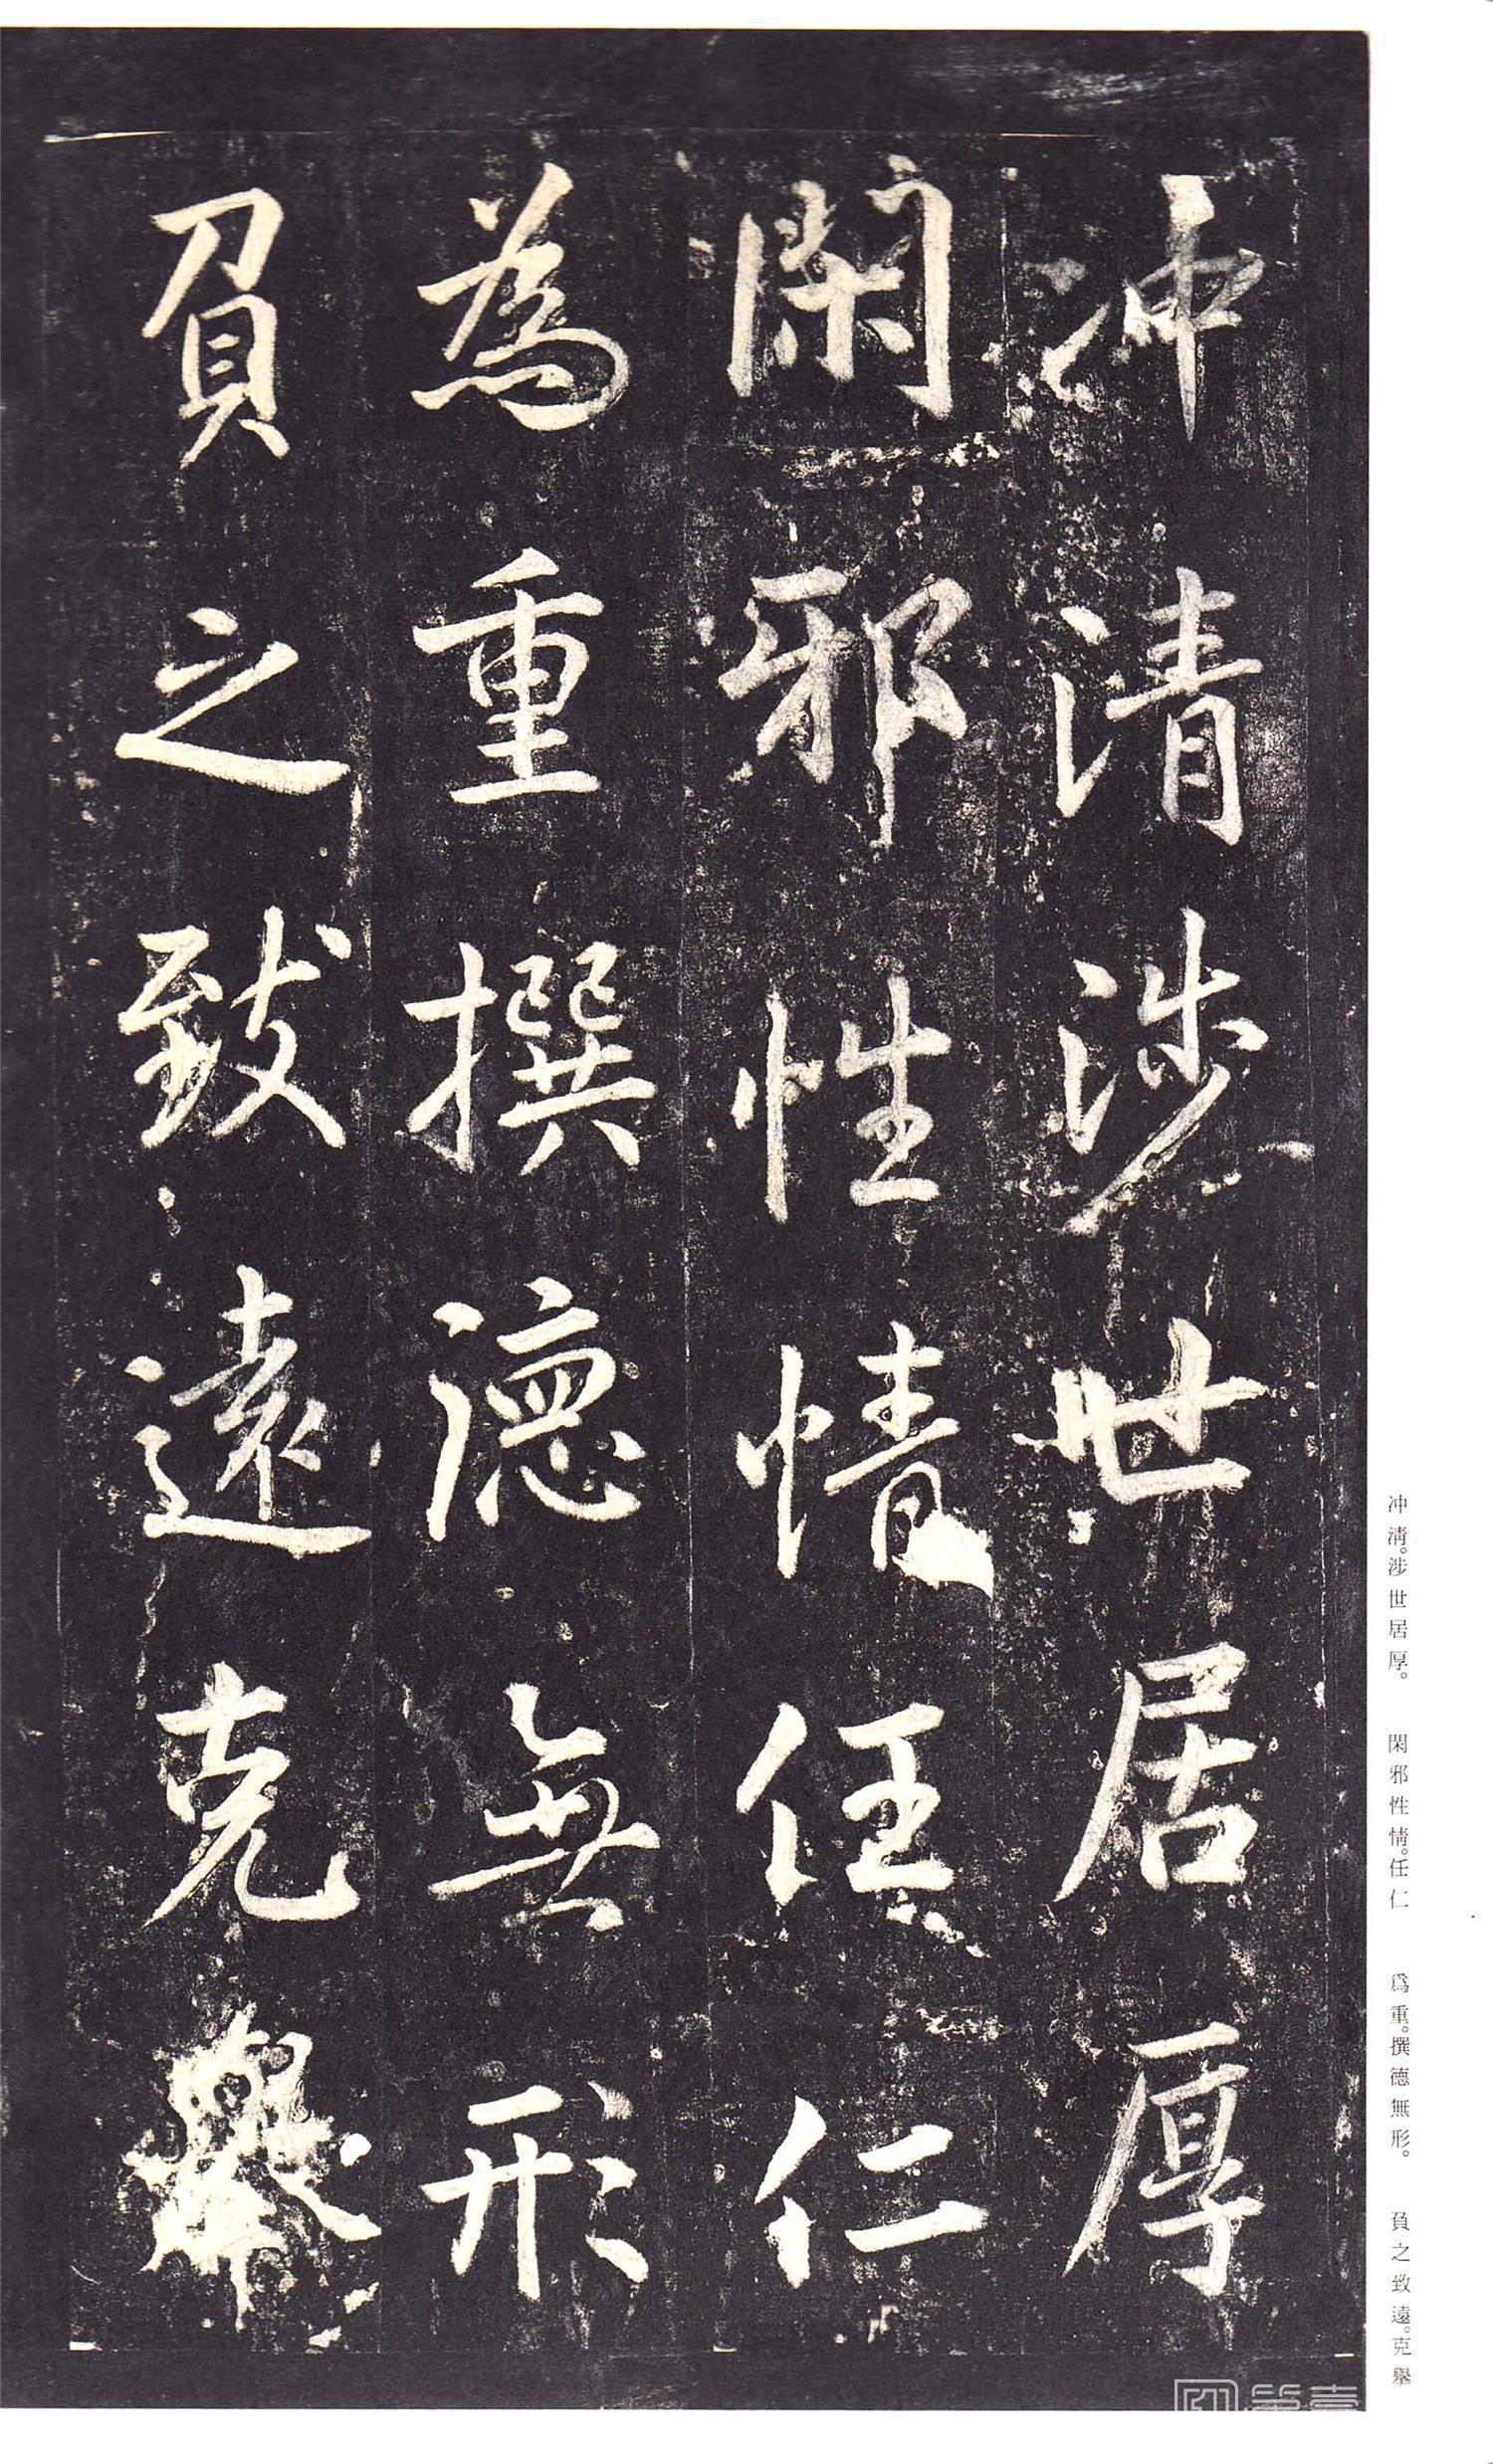 冲清涉世居厚
閑邪性情任仁
為重撰德無形
負之致遠克舉
冲清。涉世居厚。 閑邪性情。任仁 爲重。撰德無形。 負之致遠。克舉